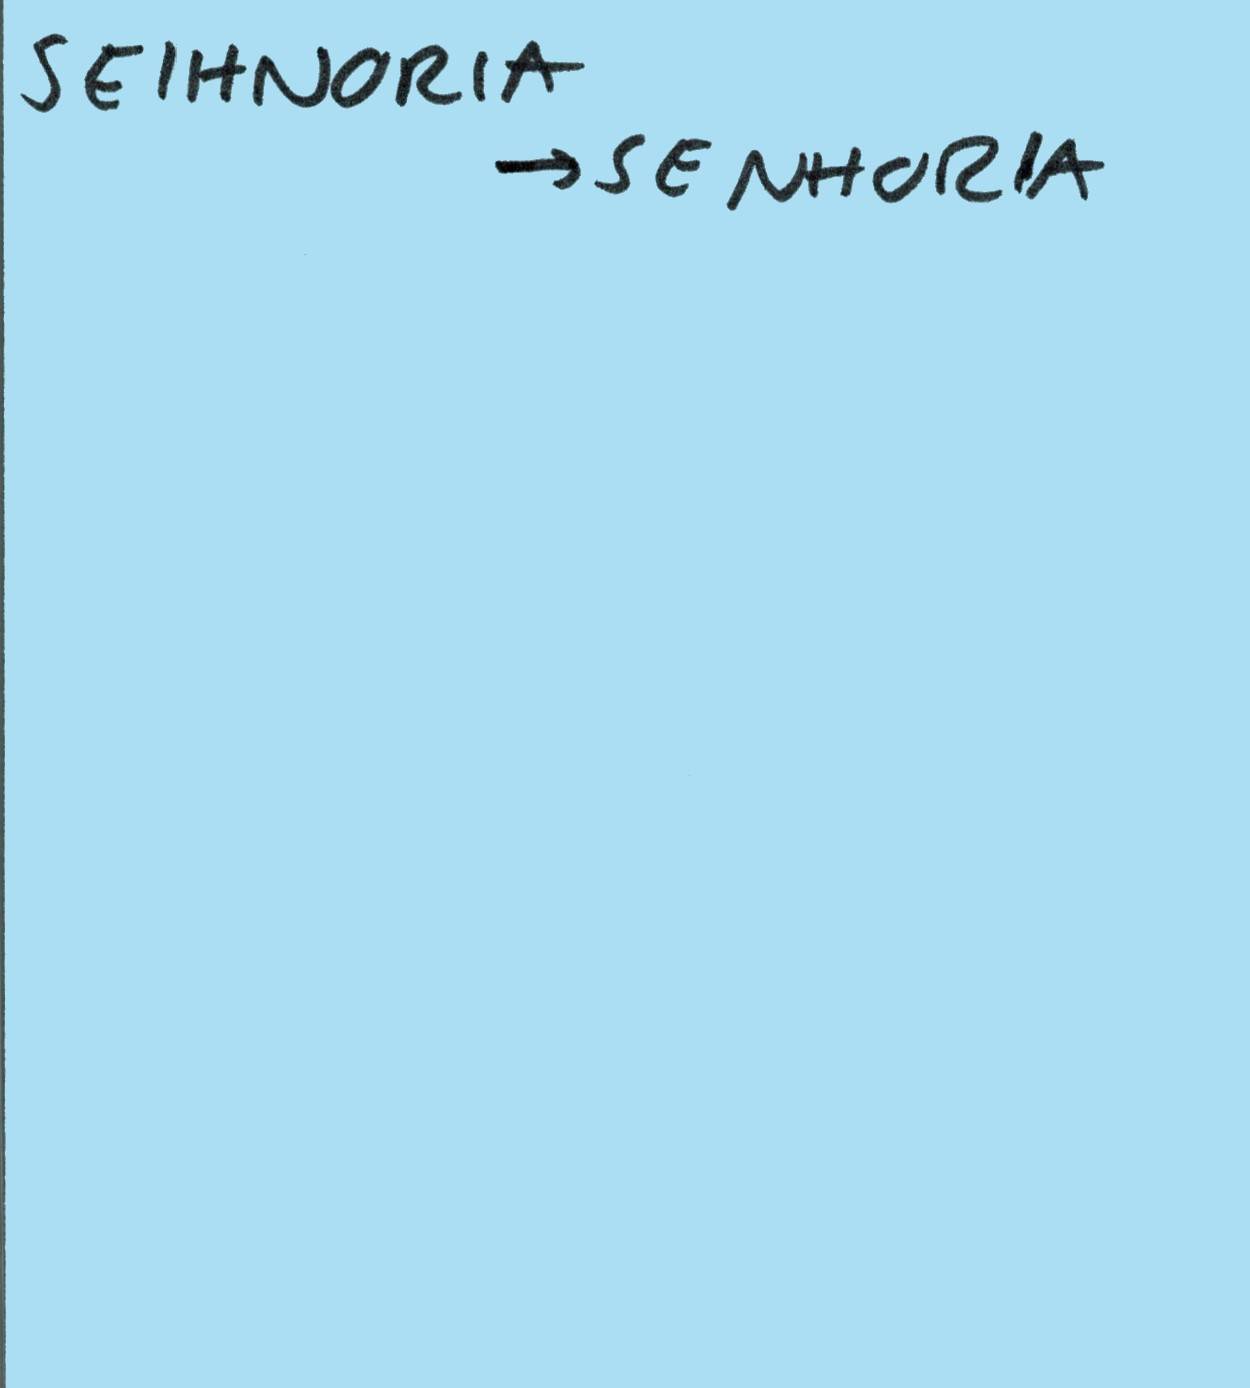 SEIHNORIA
→ SENHORIA